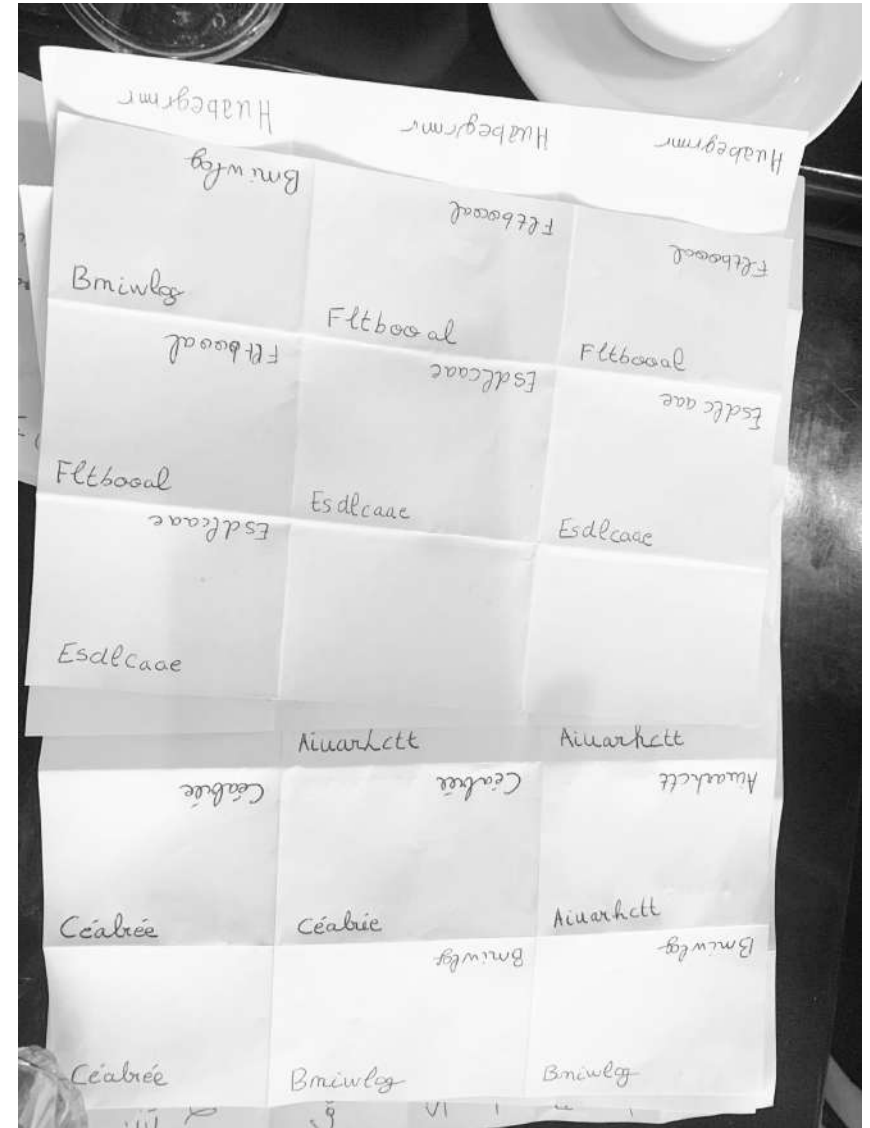 Huabegrmr Huabegrmr Huabegrmr
Bmiwlog Fltboooal Fltboooal
Bmiwlog Fltboooal Fltboooal
Fltboooal Esdlcaae Esdlcaae
Fltboooal Esdlcaae Esdlcaae
Esdlcaae
Esdlcaae
Aiuarhctt Aiuarhctt
Céabrée Céabrée Aiuarhctt
Céabrée Céabrée Aiuarhctt
Bmiwlog Bmiwlog
Céabrée Bmiwlog Bmiwlog